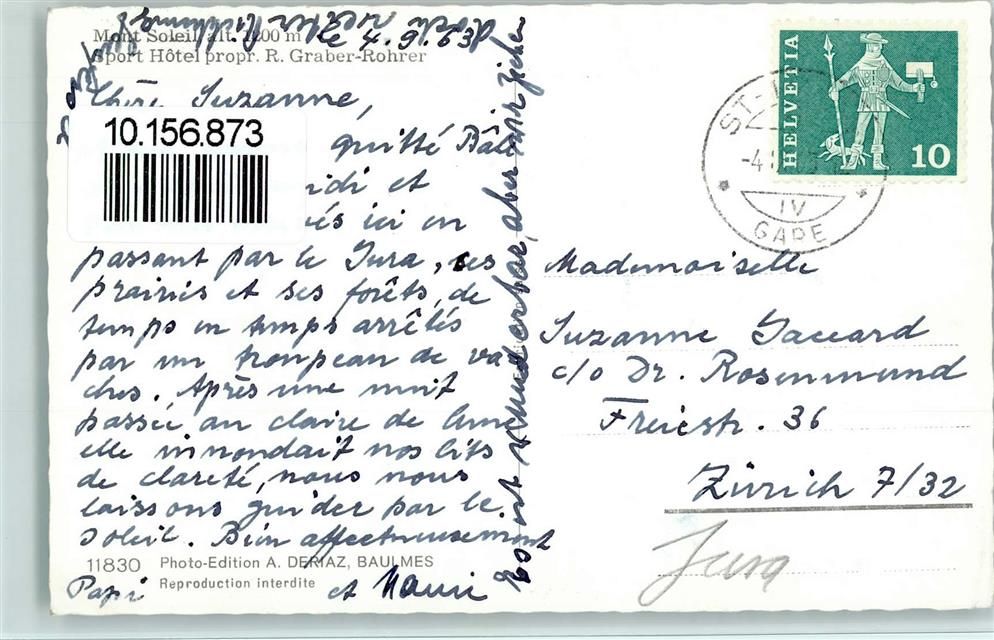 Mont Soleil alt. 1200 m
le 4.9.63
Sport Hôtel propr. R. Graber-Rohrer
Chère Suzanne,
10.156.873
quitté Bâle
idi et
és ici en
passant par le Jura, ses
prairies et ses forêts, de
temps en temps arrêtés
par un troupeau de va
ches. Après une nuit
passée au claire de lune
elle innondait nos lits
de clareté, nous nous
laissons guider par le
soleil. Bien affectueusement
11830 Photo-Edition A. DERIAZ, BAULMES
Reproduction interdite
Papi et Mauri
Es ist wunderbar, aber wir ziehen
doch weiter
HELVETIA
10
ST-I
-4
IV
GARE
Mademoiselle
Suzanne Jaccard
c/o Dr. Rosenmund
Freiestr. 36
Zürich 7/32
Jura